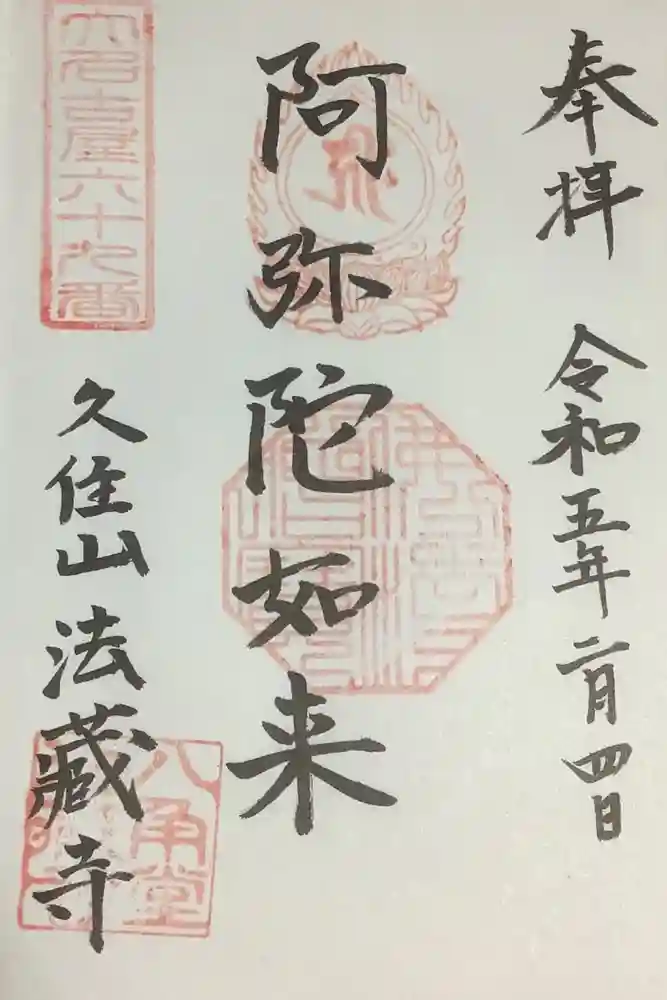 奉拝 令和五年二月四日
阿弥陀如来
久住山 法蔵寺
大名古屋六十九番
八角堂